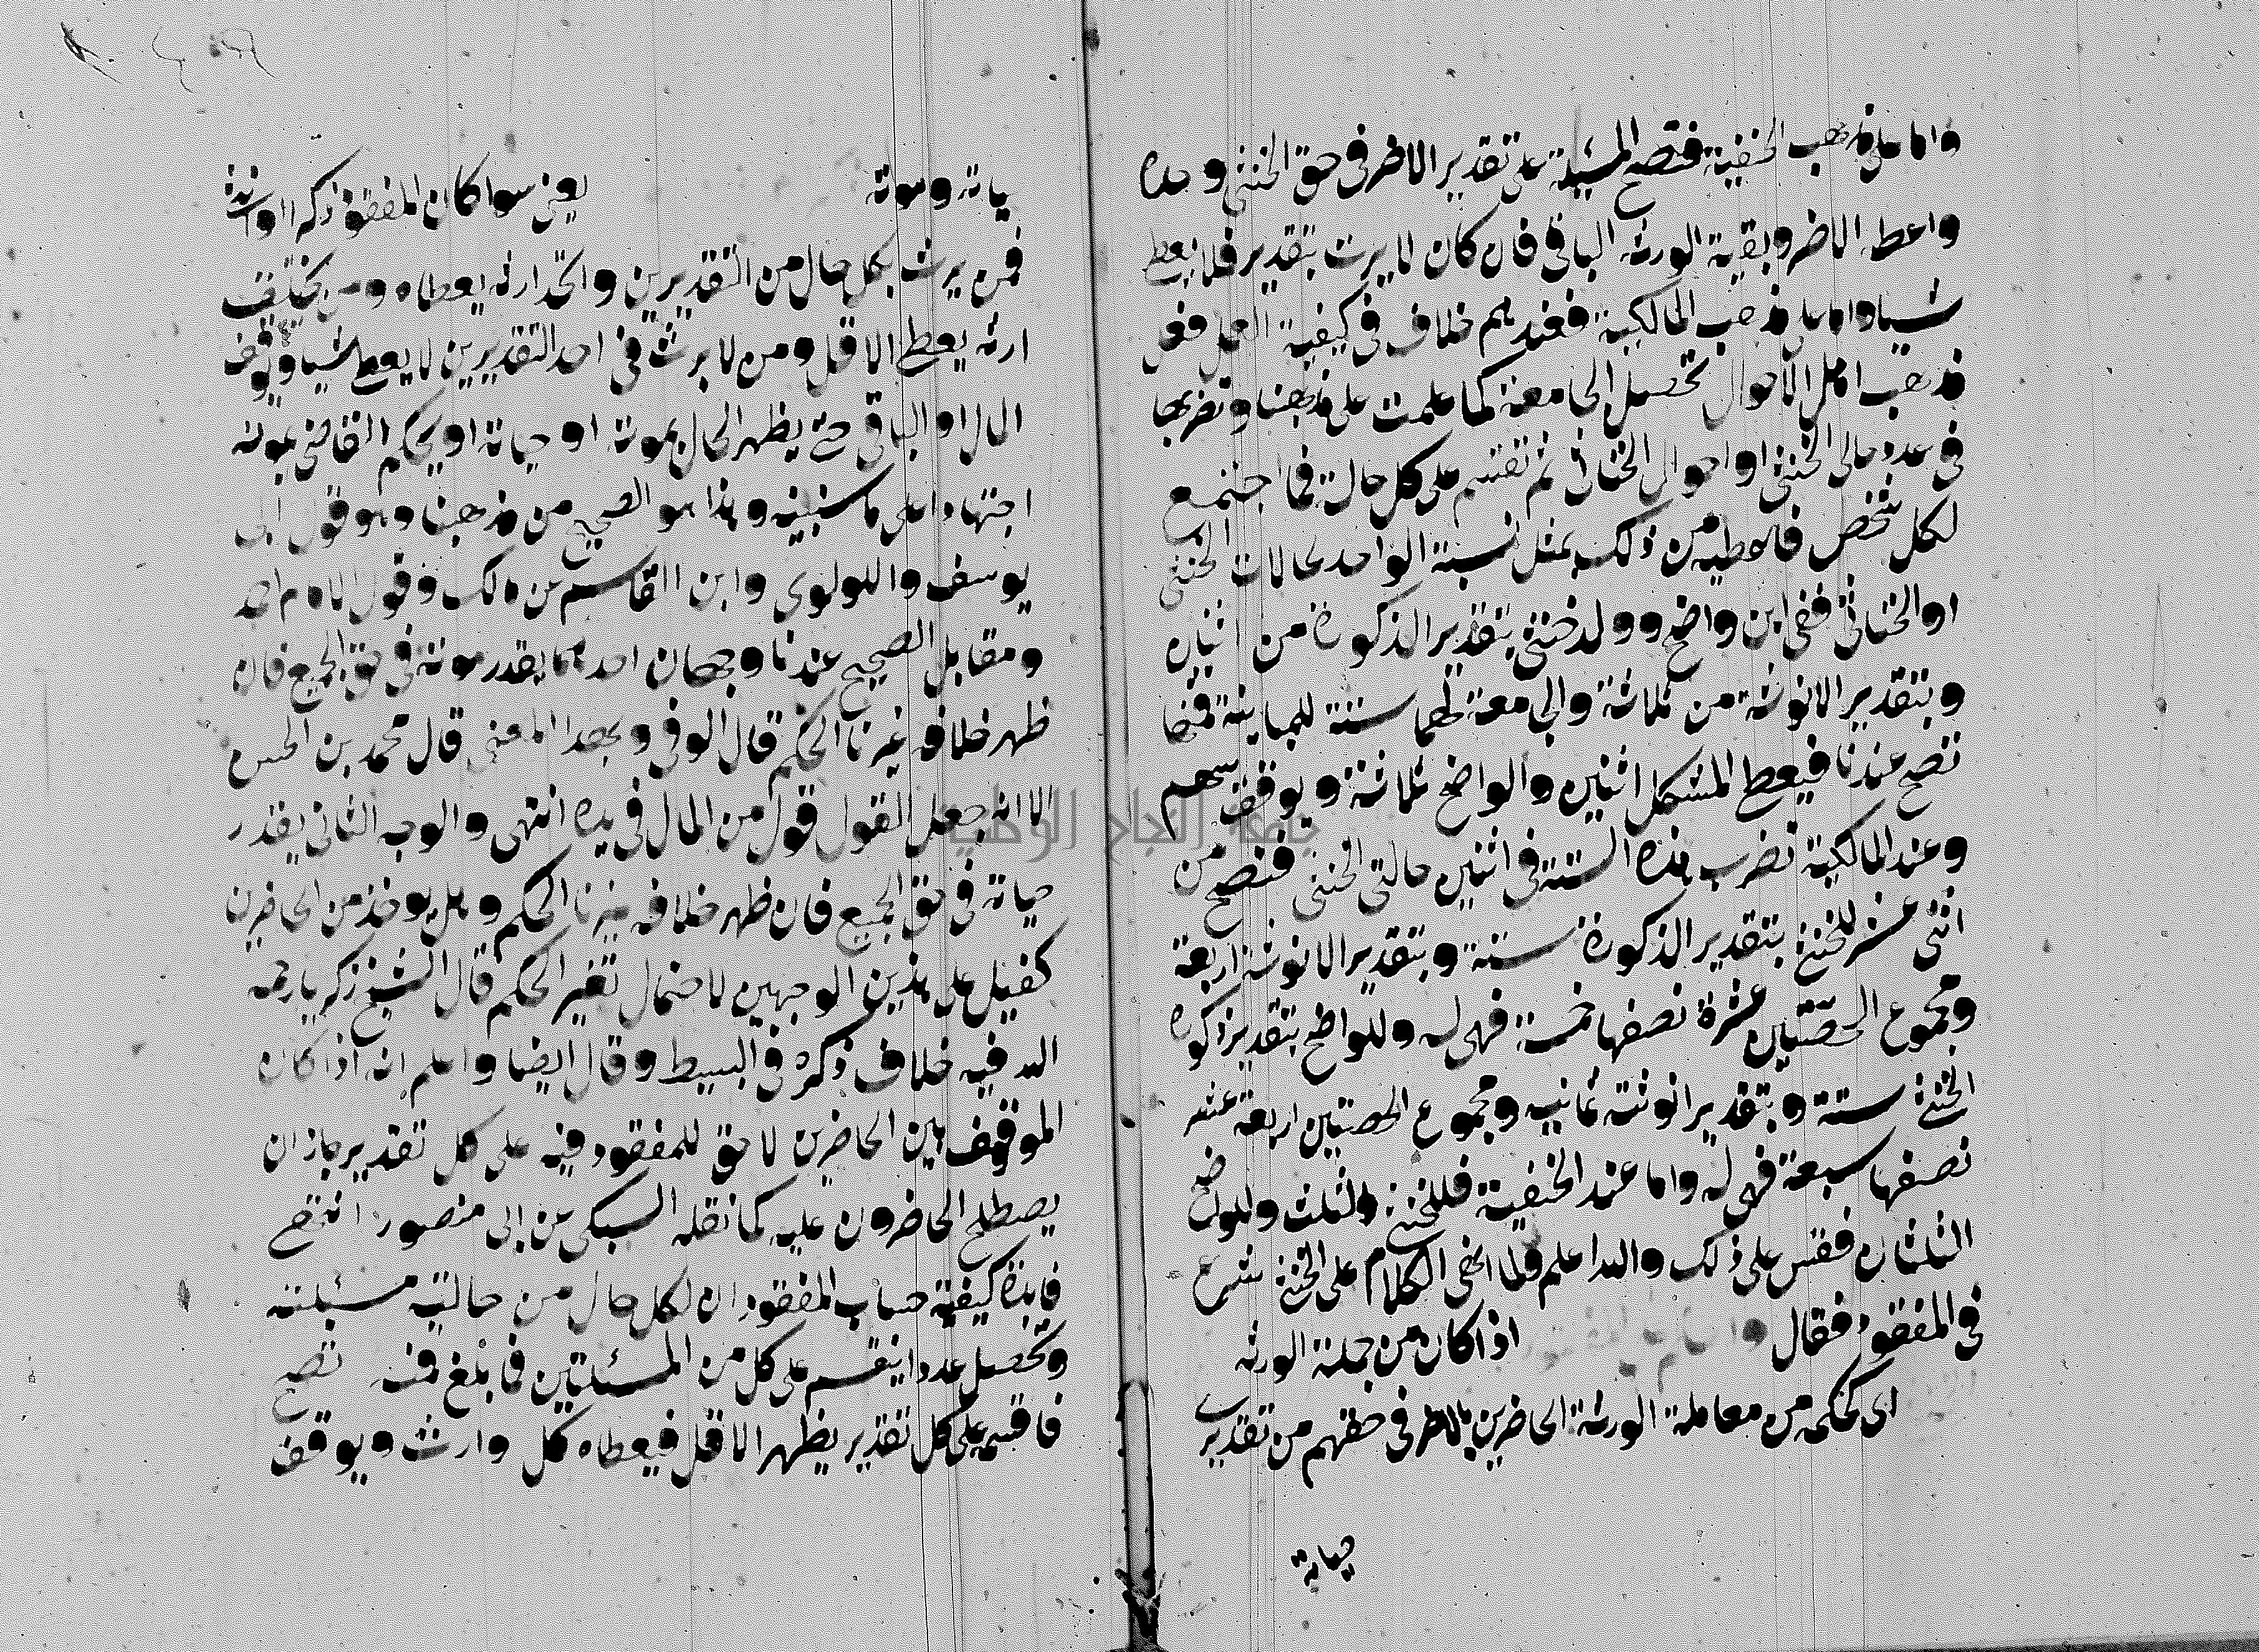 واما على مذهب الحنفية فتصح المسئلة على تقدير الاضر في حق الخنثى وحده
واعطه الاضر وبقية الورثة الباقي فان كان لا يرث بتقدير فلا يعط
شيا واما على مذهب المالكية فعندهم خلاف في كيفية العمل فعلى
مذهب اهل الاحوال تحصل الجامعة كما علمت على مذهبنا وتضربها
في عدد حالى الخنثى او احوال الخناثى ثم تقسم على كل حالة فما اجتمع
لكل شخص فاعطيه من ذلك بمثل نسبة الواحد لحالات الخنثى
او الخناثى ففي ابن واضح وولد خنثى بتقدير الذكورة من اثنين
وبتقدير الانوثة من ثلاثة والجامعة لهما ستة للمباينة فمنها
تصح عندنا فيعطى المشكل اثنين والواضح ثلاثة ويوقف سهم
وعند المالكية تضرب هذه الستة في اثنين حالتى الخنثى فتصح من
اثنى عشر للخنثى بتقدير الذكورة ستة وبتقدير الانوثة اربعة
ومجموع الحصتين عشرة نصفها خمسة فهي له وللواضح بتقدير ذكورة
الخنثى ستة وبتقدير انوثته ثمانيه ومجموع الحصتين اربعة عشر
نصفها سبعة فهي له واما عند الحنفية فللخنثى الثلث وللواضح
الثلثان فقس على ذلك والله اعلم ولما انهى الكلام على الخنثى شرع
في المفقود فقال اذا كان من جملة الورثه
اى تحكمه من معاملة الورثة الحاضرين بالاضر في حقهم من تقدير
حياته
ياته وموته يعنى سوا كان المفقود ذكرا او انثى
فمن يرث بكل حال من التقديرين واتحد ارثه يعطاه ومن يختلف
ارثه يعطى الاقل ومن لا يرث في احد التقديرين لا يعطى شيا ويوقف
المال او الباقي حتى يظهر الحال بموته او حياته او يحكم القاضى بموته
اجتهادا على ما سنبينه وهذا هو الصحيح من مذهبنا وهو قول ابى
يوسف واللولوى وابن القاسم عن مالك وقول الامام احمد
ومقابل الصحيح عندنا وجهان احدهما يقدر موته في حق الجميع فان
ظهر خلافه غيرنا الحكم قال الوفى وبهذا المعنى قال محمد بن الحسن
الا انه جعل القول قول من المال في يده انتهى والوجه الثانى يقدر
حياته في حق الجميع فان ظهر خلافه غيرنا الحكم وهل يوخذ من الحاضرين
كفيل على هذين الوجهين لاحتمال تغير الحكم قال الشيخ زكريا رحمه
الله فيه خلاف ذكره في البسيط وقال ايضا واعلم انه اذا كان
الموقوف بين الحاضرين لا حق للمفقود فيه على كل تقدير جاز ان
يصطلح الحاضرون عليه كما نقله السبكى عن ابى منصور انتهى
فايدة كيفية حساب المفقود ان لكل حال من حالتيه مسئلته
وتحصل عددا ينقسم على كل من المسئلتين فما بلغ فمنه تصح
فاقسمه على كل تقدير يظهر الاقل فيعطاه كل وارث ويوقف
جامعة النجاح الوطنية